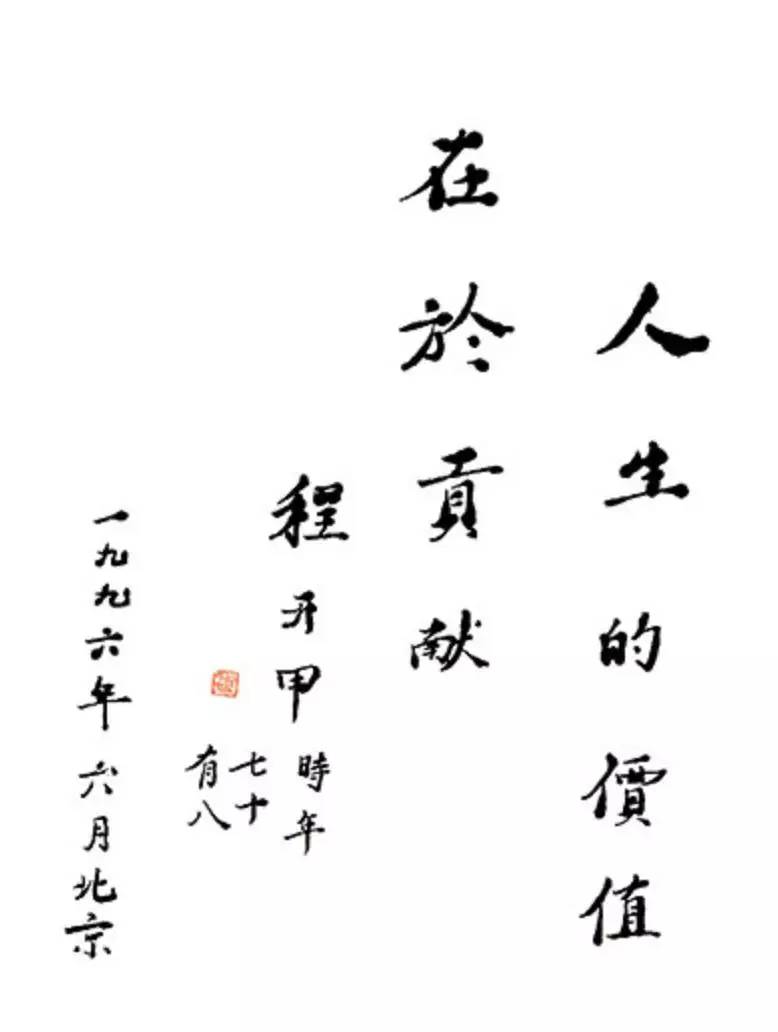 人生的價值
在於貢献
程开甲
時年
七十
有八
一九九六年六月北京